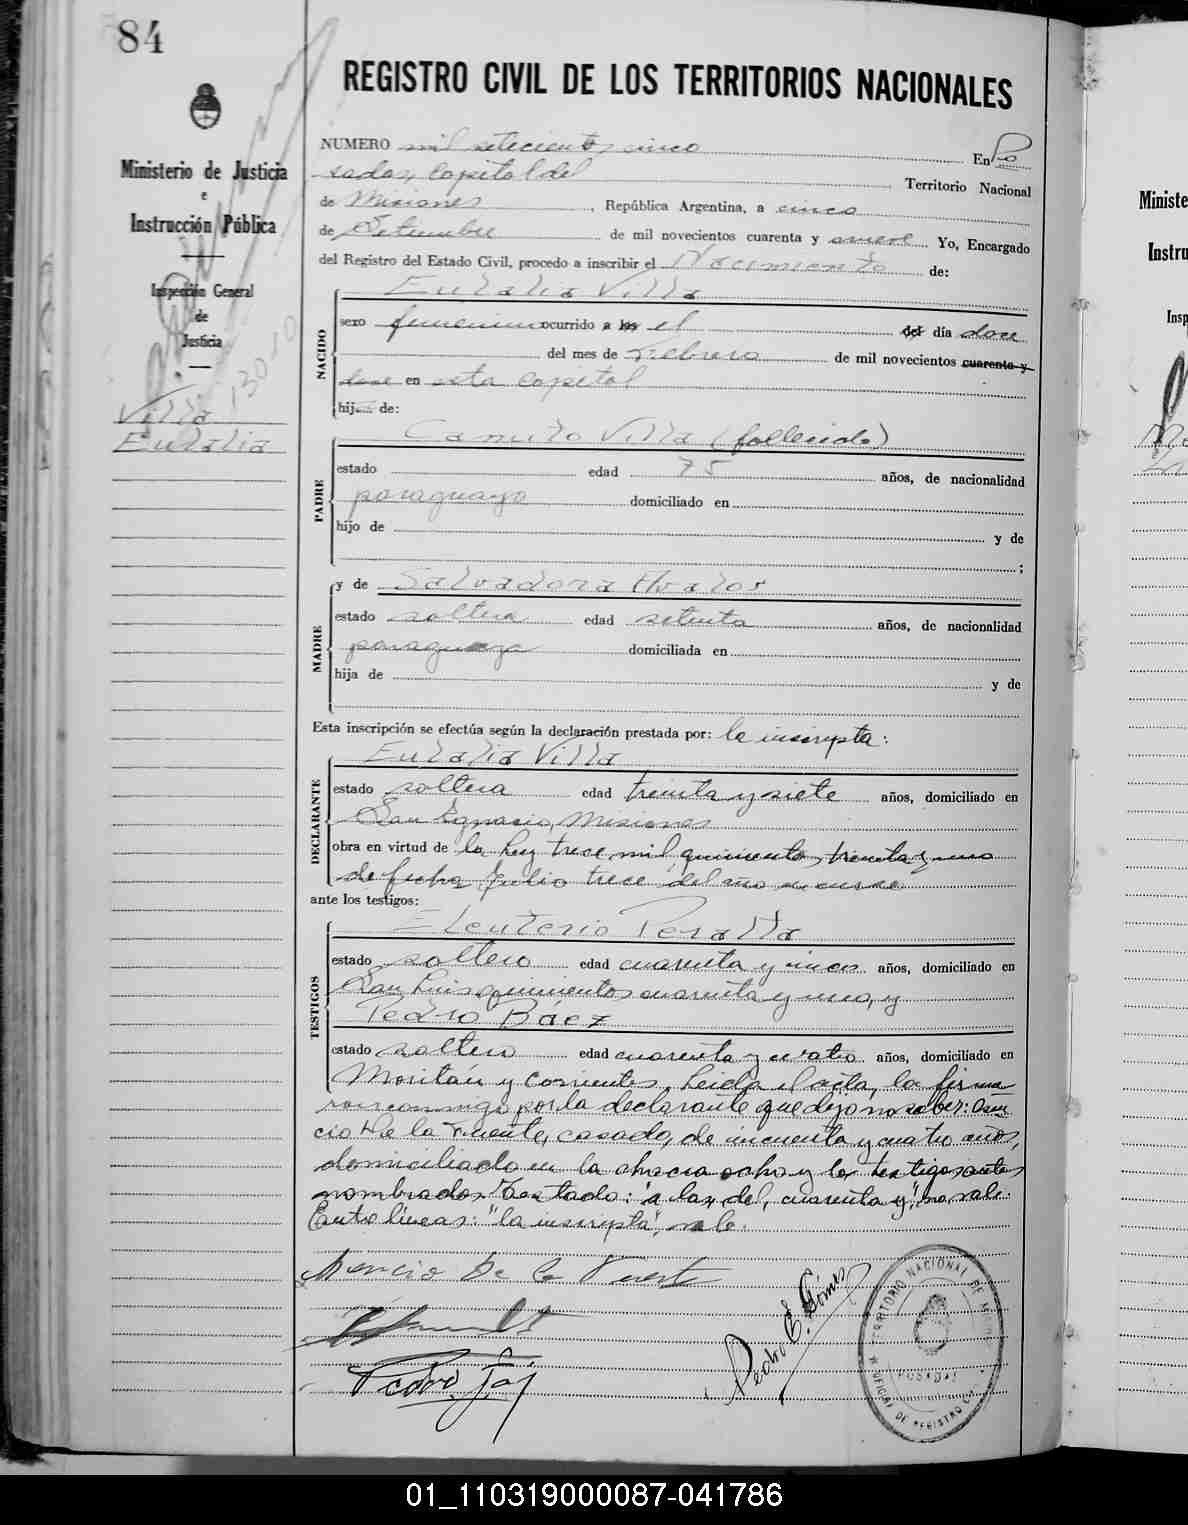 84
Ministerio de Justicia
e
Instrucción Pública
Inspección General
de
Justicia
Villa
Eulalia
REGISTRO CIVIL DE LOS TERRITORIOS NACIONALES
NUMERO mil setecientos cinco En Po
sadas, Capital del Territorio Nacional
de Misiones, República Argentina, a cinco
de Setiembre de mil novecientos cuarenta y nueve Yo, Encargado
del Registro del Estado Civil, procedo a inscribir el Nacimiento de:
NACIDO
Eulalia Villa
sexo femenino ocurrido a las el del día doce
del mes de Febrero de mil novecientos cuarenta y
doce en esta capital
hija de:
PADRE
Camilo Villa (fallecido)
estado edad 75 años, de nacionalidad
paraguaya domiciliado en
hijo de y de
;
MADRE
y de Salvadora Avalos
estado soltera edad setenta años, de nacionalidad
paraguaya domiciliada en
hija de y de
Esta inscripción se efectúa según la declaración prestada por: la inscripta:
DECLARANTE
Eulalia Villa
estado soltera edad treinta y siete años, domiciliado en
San Ignacio, Misiones
obra en virtud de la ley trece mil quinientos treinta y uno
de fecha Julio trece del año en curso
ante los testigos:
TESTIGOS
Eleuterio Peralta
estado soltero edad cuarenta y cinco años, domiciliado en
San Luis quinientos cuarenta y uno, y
Pedro Baez
estado soltero edad cuarenta y cuatro años, domiciliado en
Moritán y Corrientes. Leida el acta, la firma
ron conmigo por la declarante que dijo no saber: Asen
cio De la Fuente, casado, de cincuenta y cuatro años,
domiciliado en la chacra ocho y los testigos antes
nombrados. Testado: "a las, del, cuarenta y", no vale.
Entre líneas: "la inscripta", vale.
Asencio De la Fuente
Pedro E. Gómez
TERRITORIO NACIONAL DE
POSADAS
OFICINA DE REGISTRO
Ministe
Instru
Insp
01_110319000087-041786